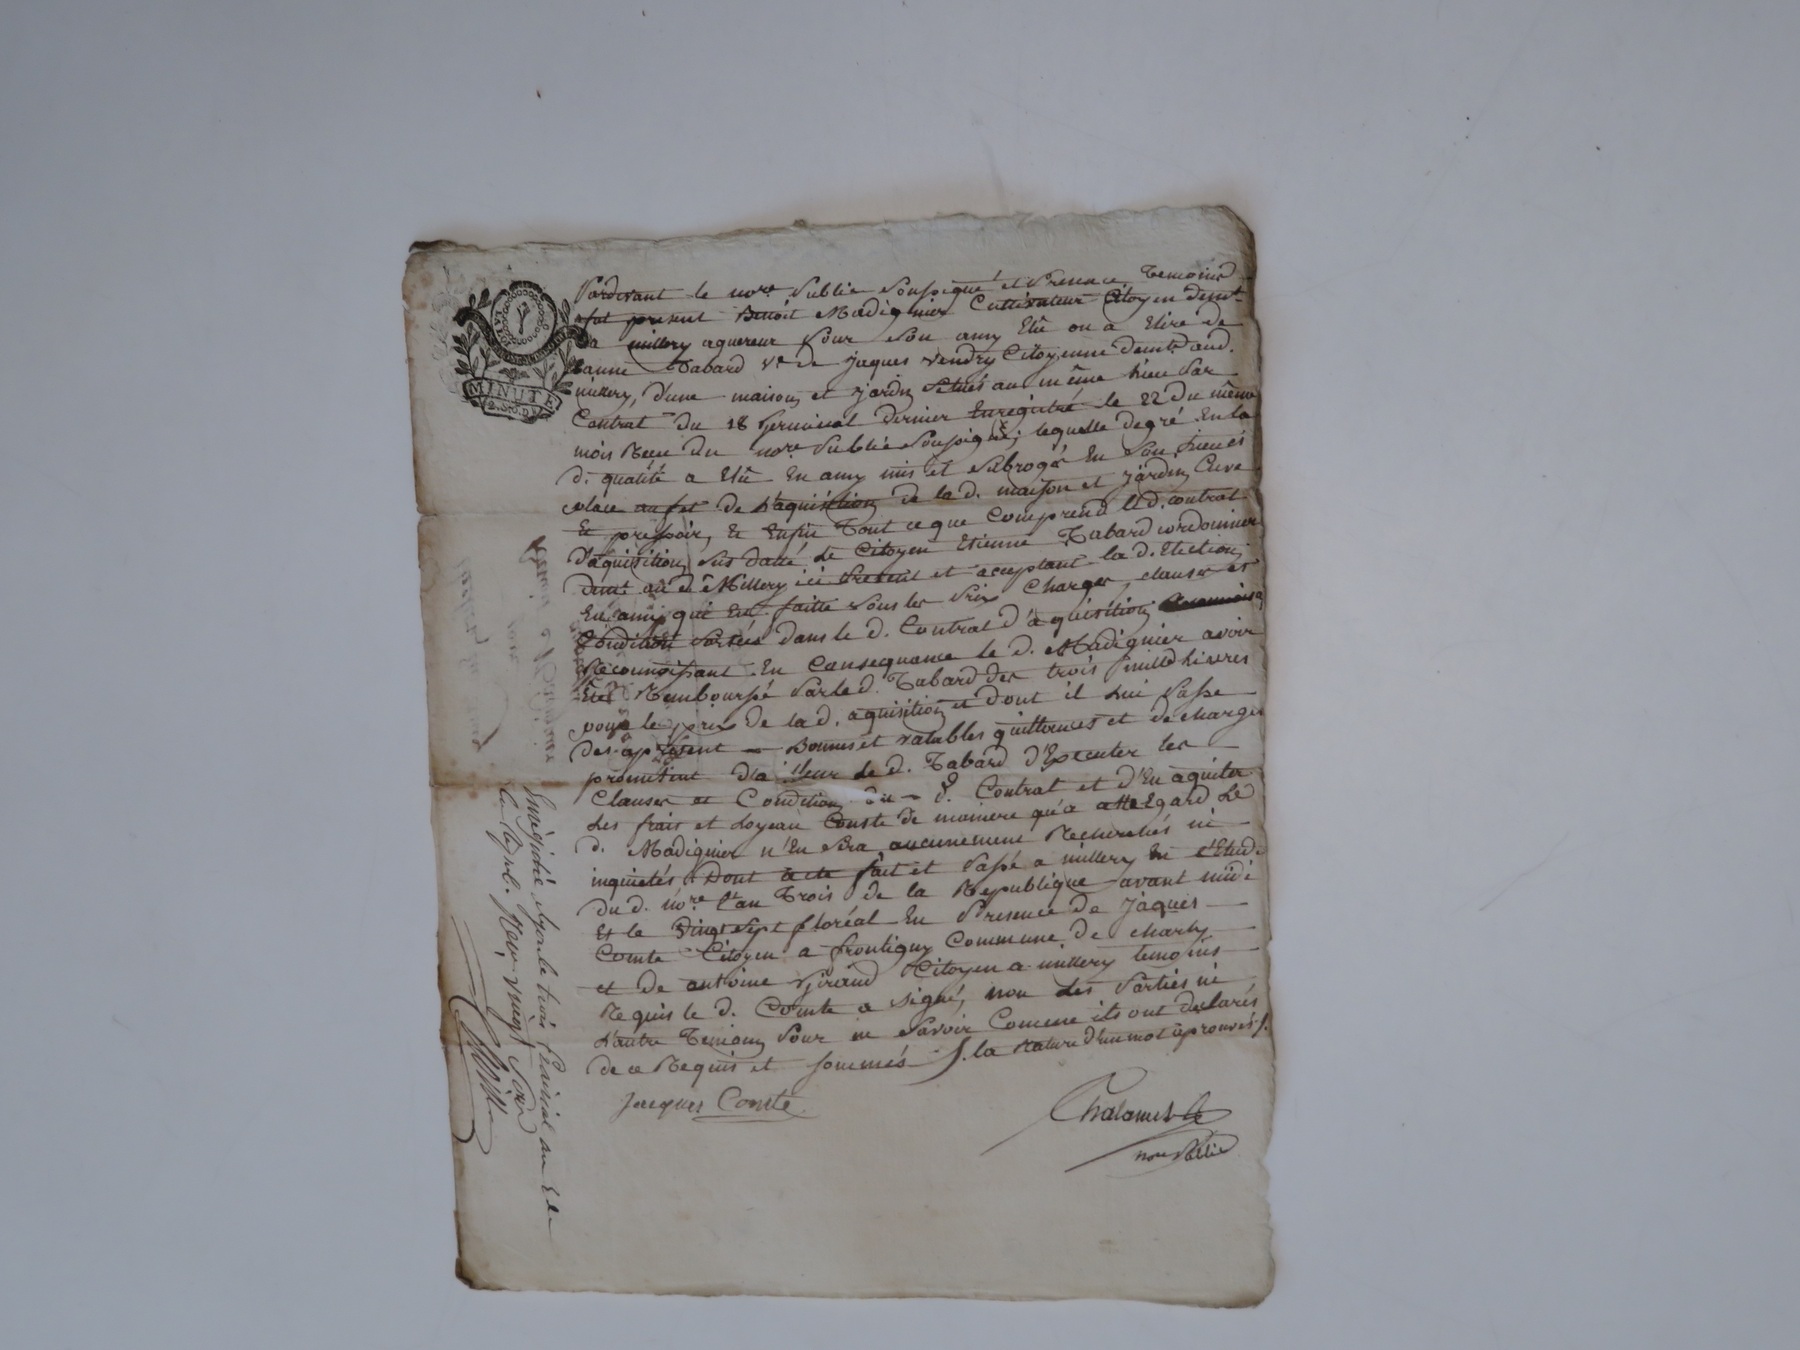 MINUTE
Pardevant le nore Public soussigné et Presence Temoins
fut present Benoit Madignier Cultivateur Citoyen demt
a millery aquereur Pour Son amy Elû ou a Elire de
Tabard ve de jaques vendry Citoyenne demte aud.
millery, d'une maison et jardin Situés au même Lieu Par
Contrat Du 18 germinal dernier Enregistré le 22 du même
mois Reçu du nore Public Soussigné, lequelle degré En la
d. qualité a Elû En amy mis et Subrogé En Son Lieu et
place au fet de L'aquisition de la d. maison et jardin, Cuve
Et pressoir, Et Enfin Tout ce que Comprend led. contrat
D'aquisition sus datté Le Citoyen Etienne Tabard cordonnier
demt au d. Millery ici Present et acceptant la d. Election
En amy qui Est faitte Sous les Prix Charges, clauses et
Condition Portées dans le d. Contrat d'aquisition
Reconnoissant En Consequance le d. Madignier avoir
Eté Remboursé Par le d. Tabard des trois mille Livres
pour le prix de la d. aquisition et dont il Lui Passe
des apresent Bonnes et valables quittances et decharges
promettant d'a le d. Tabard d'Executer les
Clauses et Condition du d. Contrat et d'En aquiter
Les frais et Loyeau Couste de maniere qu'a Egard Le
d. Madignier n'En Sera aucunement Recherchés ni
inquietés. Dont acte fait et Passé a millery En l'Etude
Du d. nore L'an Trois de la Republique avant midi
Et le Vingt Sept floréal En Presence de Jaques
Comte Citoyen a frontigny Commune de charly
et de antoine Giraud Citoyen a millery temoins
Requis le d. Comte a signé, non Les Parties ni
L'autre Temoin Pour ne Savoir Comme ils ont declarés
de ce Requis et sommés. la Rature d'un mot aprouvés.
Jacques Comte
nore Public
Enregistré a Lyon le trois Prairial an 3 de
la Repub. Reçu vingt Sous